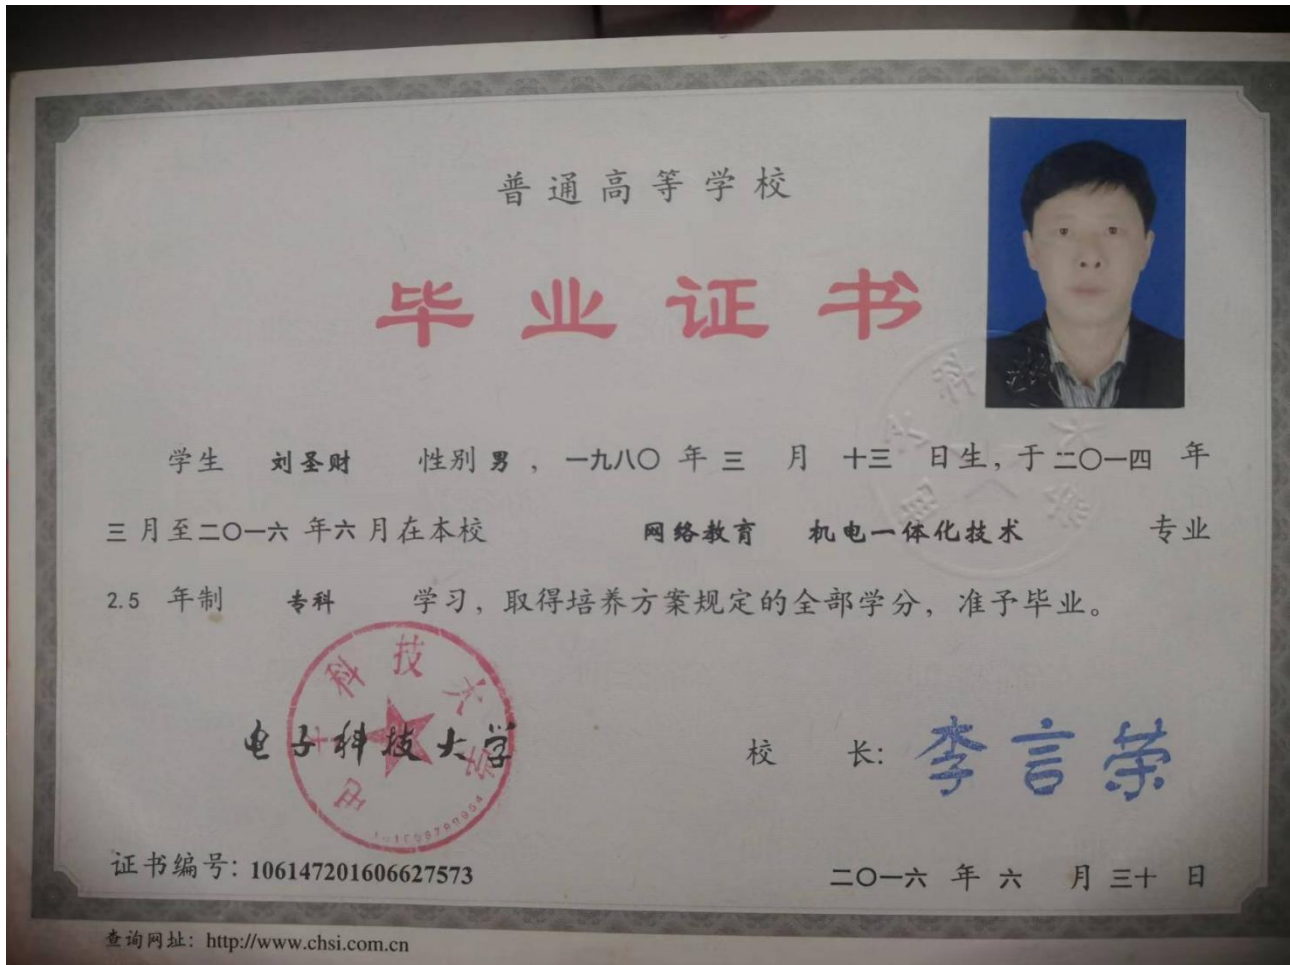 普通高等学校
毕业证书
学生 刘圣财 性别 男 ，一九八〇 年 三 月 十三 日生，于 二〇一四 年
三 月至 二〇一六 年 六 月在本校 网络教育 机电一体化技术 专业
2.5 年制 专科 学习，取得培养方案规定的全部学分，准予毕业。
电子科技大学
电子科技大学
校 长： 李言荣
证书编号：106147201606627573
二〇一六 年 六 月 三十 日
查询网址：http://www.chsi.com.cn